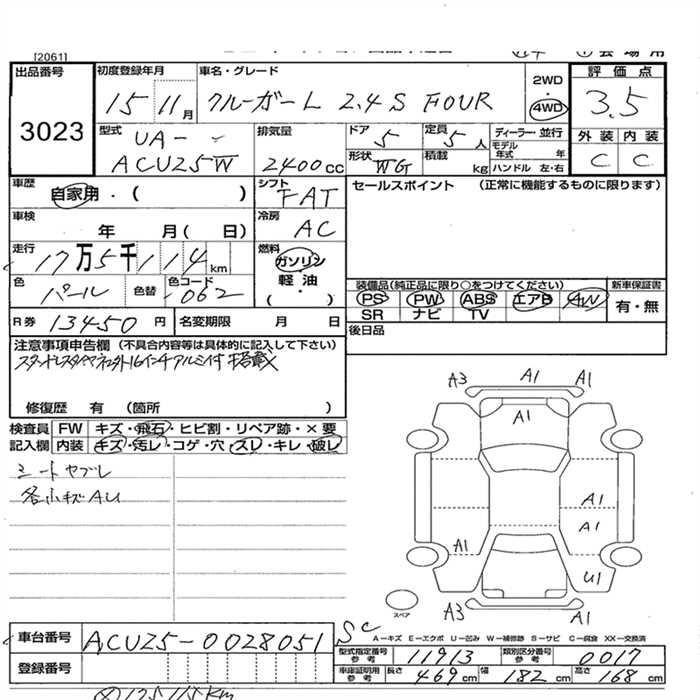 [2061]
出品番号
3023
初度登録年月
15 11月
車名・グレード
クルーガーL 2.4S FOUR
2WD
・
4WD
評価点
3.5
外装 内装
C C
型式
UA-
ACU25W
排気量
2400cc
ドア
5
定員
5人
形状
WG
積載
kg
ディーラー・並行
モデル年式 年
ハンドル 左・右
車歴
自家用・( )
シフト
FAT
セールスポイント (正常に機能するものに限ります)
車検
年 月( 日)
冷房
AC
走行
17万5千114km
燃料
ガソリン
軽油
(・)
色
パール
色替
色コード
062
装備品(純正品に限り○をつけてください)
PS PW ABS エアB AW
SR ナビ TV
新車保証書
有・無
R券 13450円
名変期限 月 日
後日品
注意事項申告欄 (不具合内容等は具体的に記入して下さい)
スタッドレスタイヤ16インチアルミ付 搭載
修復歴 有 (箇所 )
検査員記入欄
FW キズ・飛石・ヒビ割・リペア跡・×要
内装 キズ・汚レ・コゲ・穴・スレ・キレ・破レ
シートヤブレ
各小キズAU
A3 A1 A1
A1
A1
A1
A1
U1
A3 A1
スペア
A-キズ E-エクボ U-凹み W-補修跡 S-サビ C-腐食 XX-交換済
車台番号
ACU25-0028051
SC
登録番号
型式指定番号 参考
11913
類別区分番号 参考
0017
車庫証明用 参考
長さ 469cm
幅 182cm
高さ 168cm